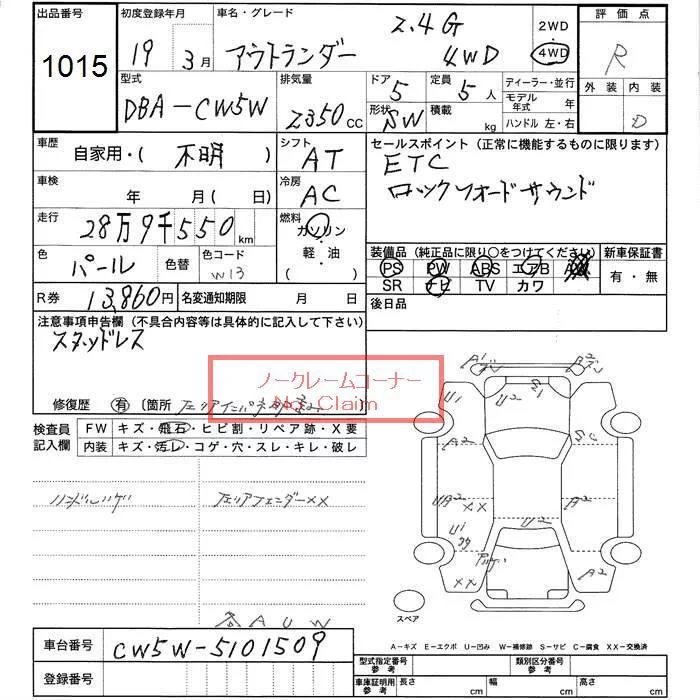 出品番号 初度登録年月 車名・グレード 2.4G 2WD 評価点
1015 19 3月 アウトランダー 4WD 4WD R
型式 排気量 ドア 5 定員 5人 ディーラー・並行 外装 内装
DBA-CW5W 2350cc 形状 SW 積載 kg モデル年式 年 D
ハンドル 左・右
車歴 自家用・( 不明 ) シフト AT セールスポイント (正常に機能するものに限ります)
ETC
車検 年 月 ( 日) 冷房 AC ロックフォードサウンド
走行 28万9千550km 燃料 ガソリン
軽・油
( ・ )
色 パール 色替 色コード W13
装備品 (純正品に限り〇をつけてください) 新車保証書
PS PW ABS エアB AW 有・無
SR ナビ TV カワ
R券 13,860円 名変通知期限 月 日 後日品
注意事項申告欄 (不具合内容等は具体的に記入して下さい)
スタッドレス
ノークレームコーナー
No Claim
修復歴 有 〔箇所
検査員記入欄 FW キズ・飛石・ヒビ割・リペア跡・X要
内装 キズ・汚レ・コゲ・穴・スレ・キレ・破レ
ハンドルハゲ 左リアフェンダーXX
A1 A2
U1 U2 S1
A2 SC
UA2 XX U2 A2
U1
XX A2
スペア
A U W
車台番号 CW5W-5101509
登録番号
A-キズ E-エクボ U-凹み W-補修跡 S-サビ C-腐食 XX-交換済
型式指定番号 参考 類別区分番号 参考
車庫証明用 参考 長さ cm 幅 cm 高さ cm